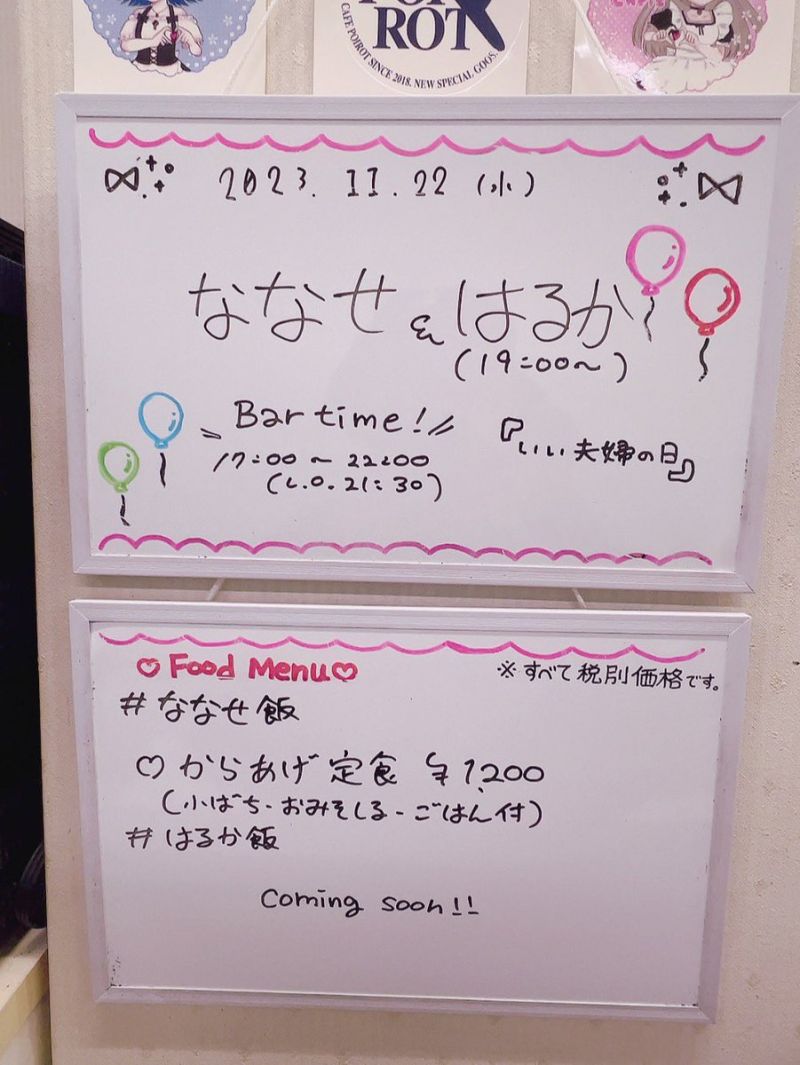 ROT
CAFE POIROT SINCE 2018. NEW SPECIAL GOOS.
2023. 11. 22 (水)
ななせ & はるか
(19:00〜)
Bar time!
17:00 〜 22:00
(L.O. 21:30)
『いい夫婦の日』
♡Food Menu♡
※すべて税別価格です。
#ななせ飯
♡からあげ定食 ¥1,200
(小ばち・おみそしる・ごはん付)
#はるか飯
Coming soon!!